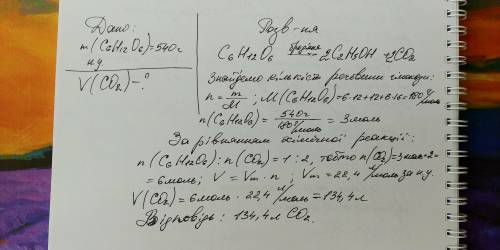 Дано:
m(C6H12O6)=540г
н.у.
V(CO2)-?
Розв-ня
C6H12O6 бродіння 2C2H5OH + 2CO2
Знайдемо кількість речовини глюкози:
n = m/M ; M(C6H12O6)=6·12+12+6·16=180 г/моль
n(C6H12O6) = 540г/180 г/моль = 3 моль
За рівнянням хімічної реакції:
n(C6H12O6):n(CO2)=1:2, тобто n(CO2)=3 моль·2=
=6 моль; V = Vm · n ; Vm = 22,4 л/моль за н.у.
V(CO2)=6 моль · 22,4 л/моль = 134,4 л
Відповідь: 134,4 л CO2.